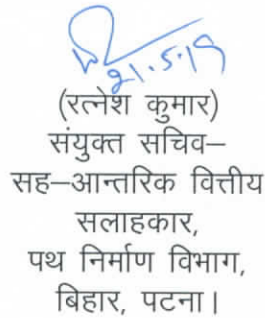 21.5.19
(रत्नेश कुमार)
संयुक्त सचिव–
सह–आन्तरिक वित्तीय
सलाहकार,
पथ निर्माण विभाग,
बिहार, पटना।